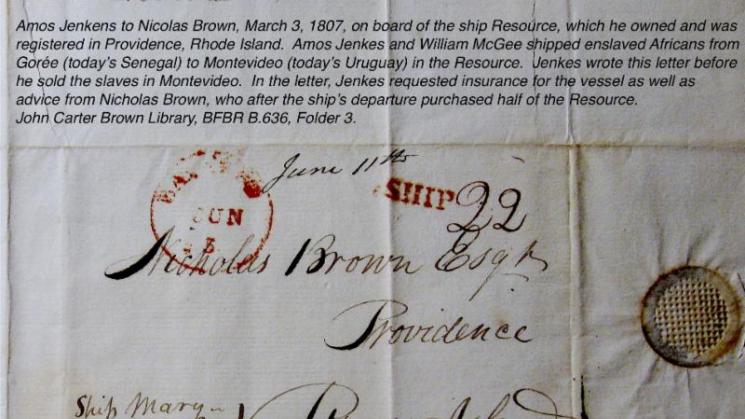 Amos Jenkens to Nicolas Brown, March 3, 1807, on board of the ship Resource, which he owned and was
registered in Providence, Rhode Island.  Amos Jenkes and William McGee shipped enslaved Africans from
Gorée (today's Senegal) to Montevideo (today's Uruguay) in the Resource.  Jenkes wrote this letter before
he sold the slaves in Montevideo.  In the letter, Jenkes requested insurance for the vessel as well as
advice from Nicholas Brown, who after the ship's departure purchased half of the Resource.
John Carter Brown Library, BFBR B.636, Folder 3.
June 11th
SHIP 22
JUN
Nicholas Brown Esqr
Providence
Ship Mary